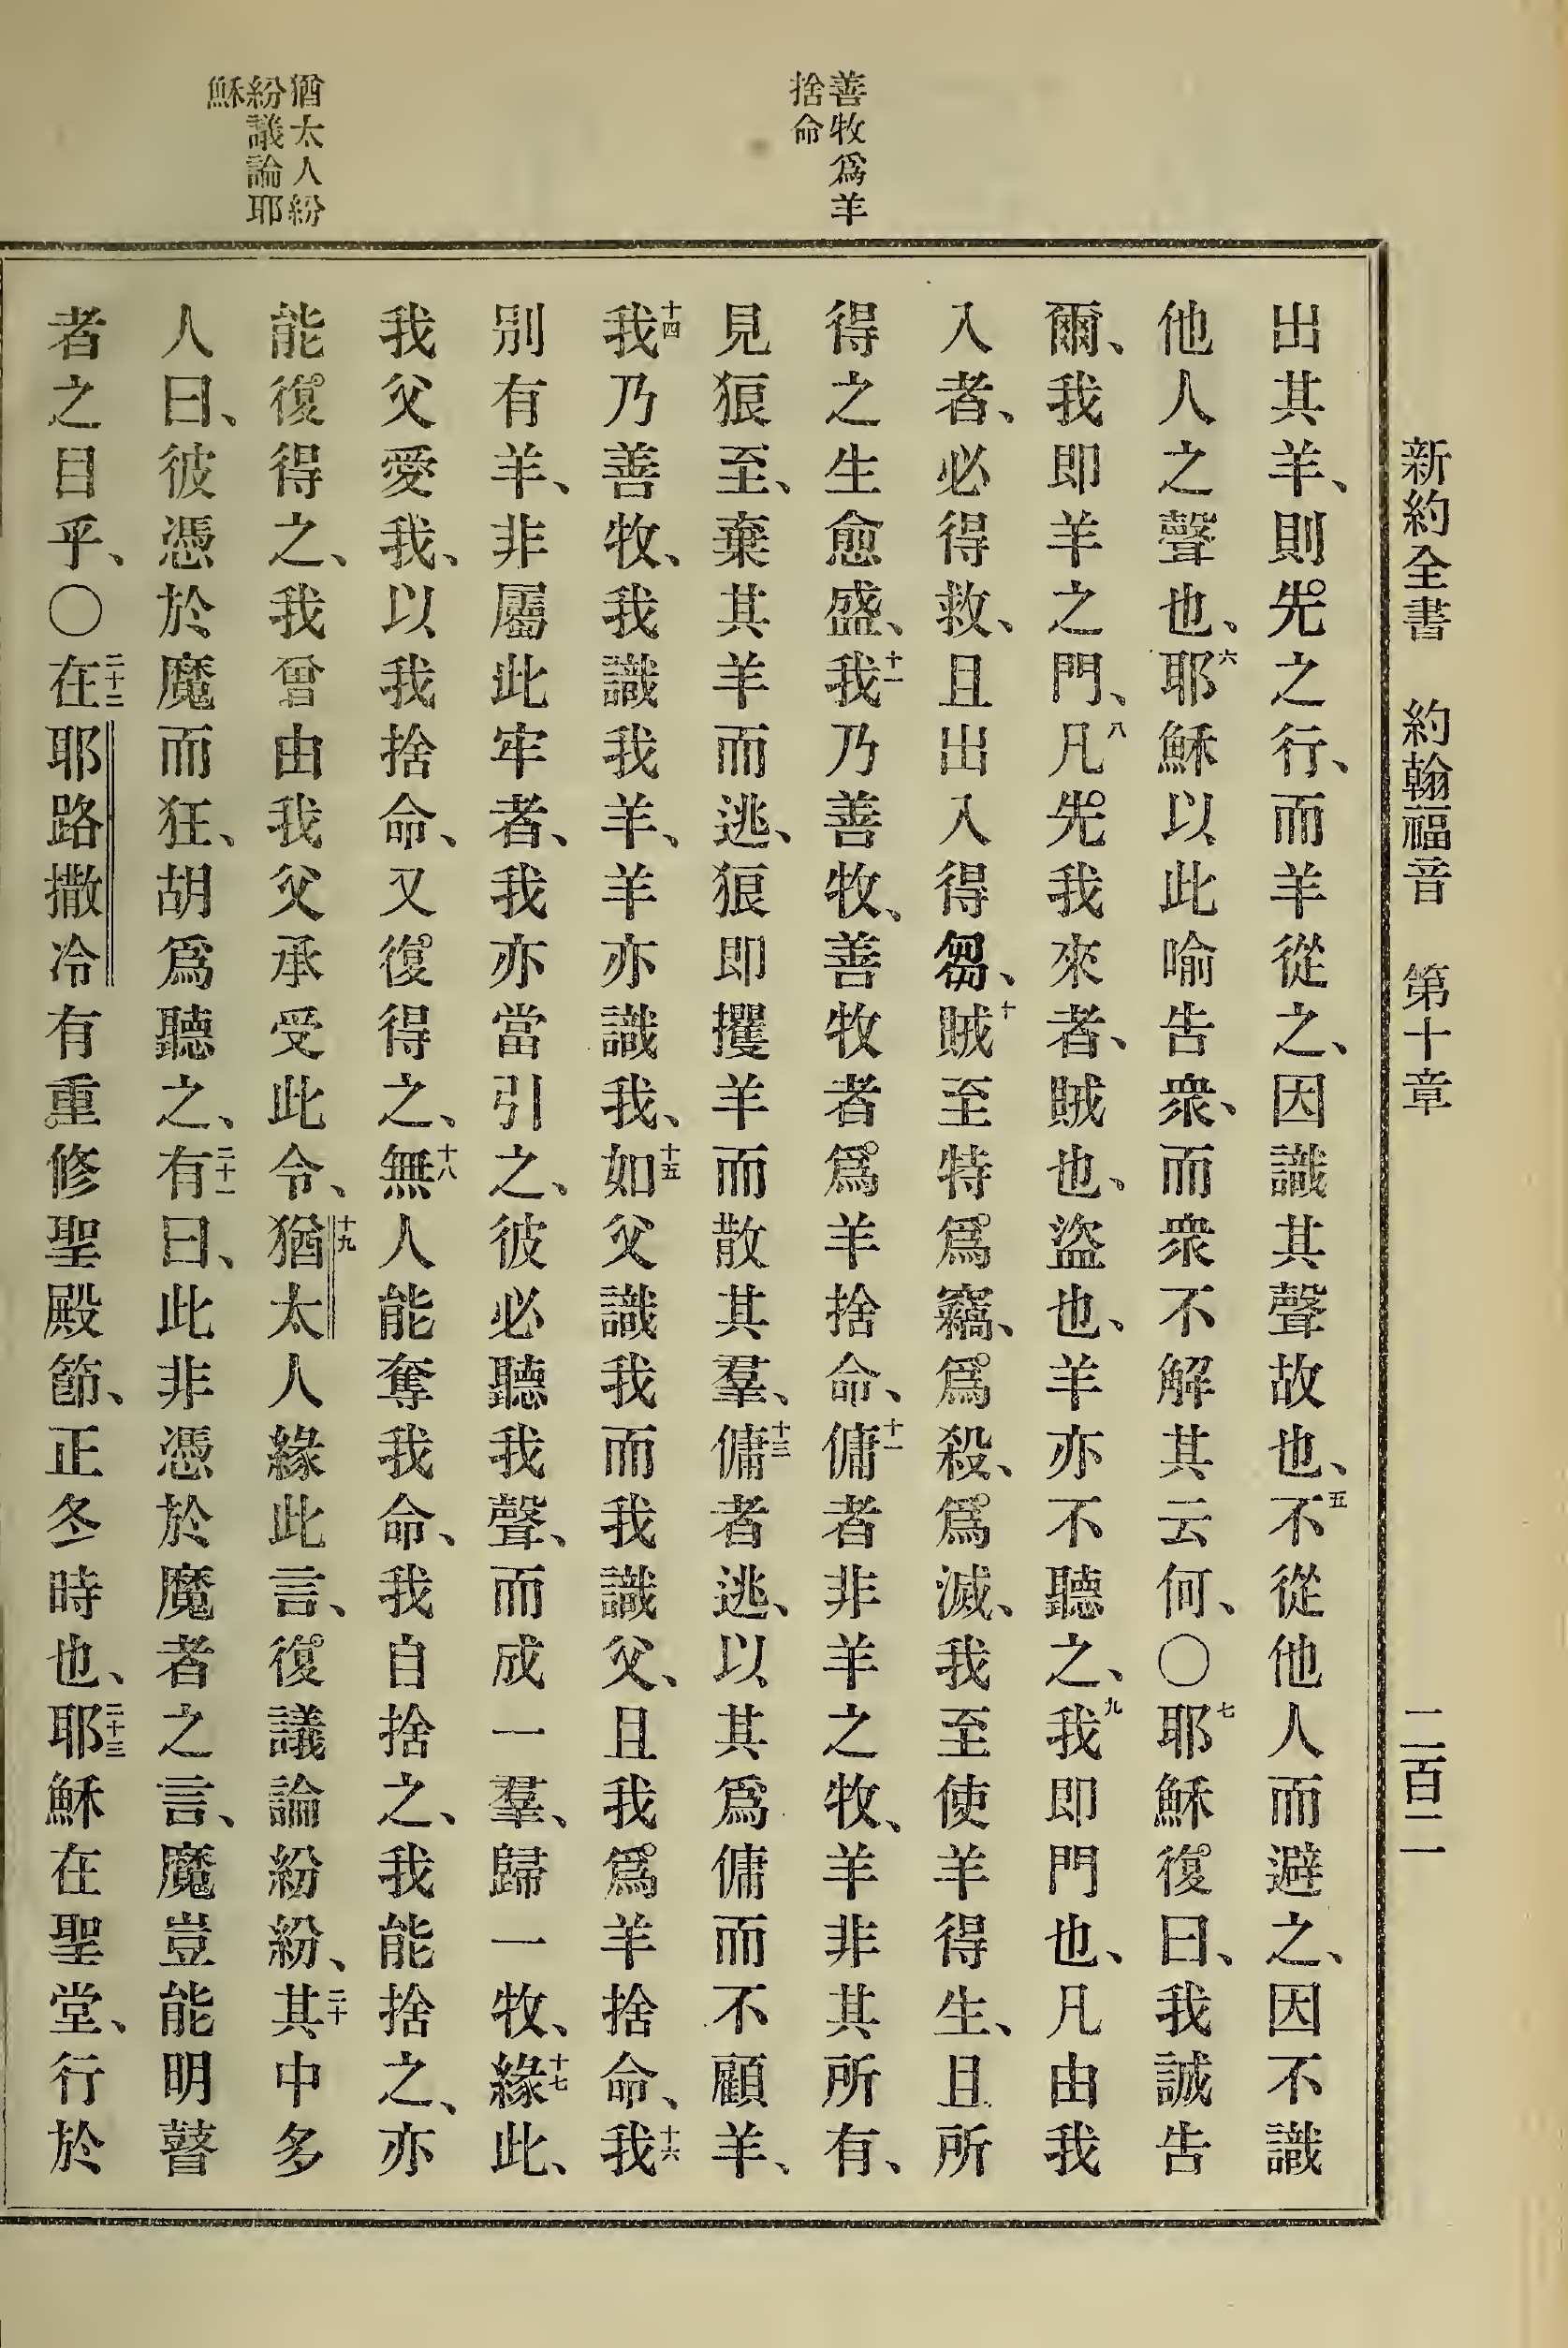 新約全書 約翰福音 第十章 二百二
善牧爲羊
捨命
猶太人紛
紛議論耶
穌
出其羊、則先之行、而羊從之、因識其聲故也、五不從他人而避之、因不識
他人之聲也、六耶穌以此喻告衆、而衆不解其云何、〇七耶穌復曰、我誠告
爾、我即羊之門、八凡先我來者、賊也、盜也、羊亦不聽之、九我即門也、凡由我
入者、必得救、且出入得芻、十賊至特爲竊、爲殺、爲滅、我至使羊得生、且所
得之生愈盛、十一我乃善牧、善牧者爲羊捨命、十二傭者非羊之牧、羊非其所有、
見狼至、棄其羊而逃、狼即攫羊而散其羣、十三傭者逃、以其爲傭而不顧羊、
十四我乃善牧、我識我羊、羊亦識我、十五如父識我而我識父、且我爲羊捨命、十六我
別有羊、非屬此牢者、我亦當引之、彼必聽我聲、而成一羣、歸一牧、十七緣此、
我父愛我、以我捨命、又復得之、十八無人能奪我命、我自捨之、我能捨之、亦
能復得之、我曾由我父承受此令、十九猶太人緣此言、復議論紛紛、二十其中多
人曰、彼憑於魔而狂、胡爲聽之、二十一有曰、此非憑於魔者之言、魔豈能明瞽
者之目乎、〇二十二在耶路撒冷有重修聖殿節、正冬時也、二十三耶穌在聖堂、行於